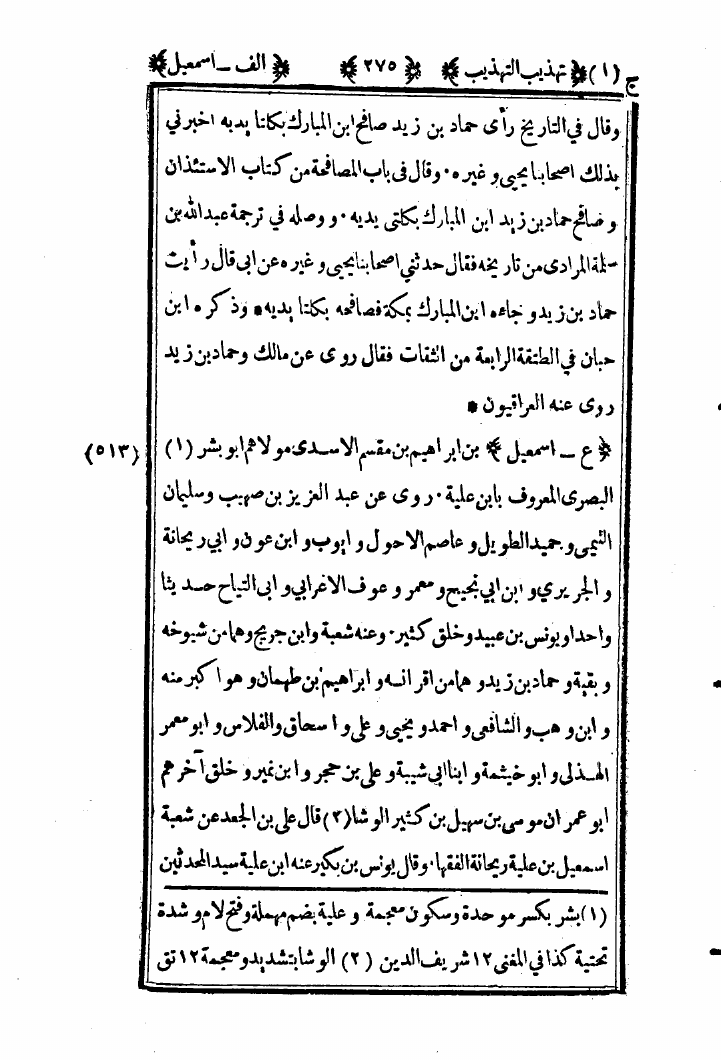 ج (١) ﴿ تهذيب التهذيب ﴾ ﴿ ٢٧٥ ﴾ ﴿ الف ــ اسمعيل ﴾
وقال في التاريخ رأى حماد بن زيد صافح ابن المبارك بكلتا يديه اخبرني
بذلك اصحابنا يحيى وغيره · وقال فى باب المصافحة من كتاب الاستئذان
و صافح حماد بن زيد ابن المبارك بكلتى يديه · ووصله في ترجمة عبد الله بن
سلمة المرادى من تاريخه فقال حدثني اصحابنا يحيى وغيره عن ابى قال رأيت
حماد بن زيد وجاءه ابن المبارك بمكة فصافحه بكلتا يديه * وذكره ابن
حبان في الطبقة الرابعة من الثقات فقال روى عن مالك وحماد بن زيد
روى عنه العراقيون *
﴿ ع ــ اسمعيل ﴾ بن ابراهيم بن مقسم الاسدى مولاهم ابو بشر (١) (٥١٣)
البصرى المعروف بابن علية · روى عن عبد العزيز بن صهيب وسليمان
التيمى و حميد الطويل و عاصم الاحول و ايوب و ابن عون و ابي ريحانة
و الجريري و ابن ابي نجيح و معمر و عوف الاعرابي و ابى التياح حديثا
واحدا و يونس بن عبيد وخلق كثير · وعنه شعبة وابن جريج وهما من شيوخه
و بقية و حماد بن زيد و هما من اقرانه و ابراهيم بن طهمان و هو اكبر منه
و ابن وهب و الشافعى و احمد و يحيى و على و اسحاق والفلاس و ابو معمر
الهذلى و ابو خيثمة و ابنا ابي شيبة و على بن حجر و ابن نمير و خلق آخرهم
ابو عمران موسى بن سهيل بن كثير الوشا (٢) قال على بن الجعد عن شعبة
اسمعيل بن علية ريحانة الفقها · وقال يونس بن بكير عنه ابن علية سيد المحدثين
(١) بشر بكسر موحدة وسكون معجمة و علية بضم مهملة وفتح لام و شدة
تحتية كذا في المغنى ١٢ شريف الدين (٢) الوشا بتشديد و معجمة ١٢ تق